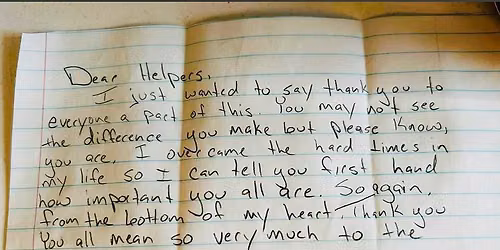 Dear Helpers,
I just wanted to say thank you to
everyone a part of this. You may not see
the difference you make but please know,
you are. I overcame the hard times in
my life so I can tell you first hand
how important you all are. So again,
from the bottom of my heart, Thank you
You all mean so very much to the